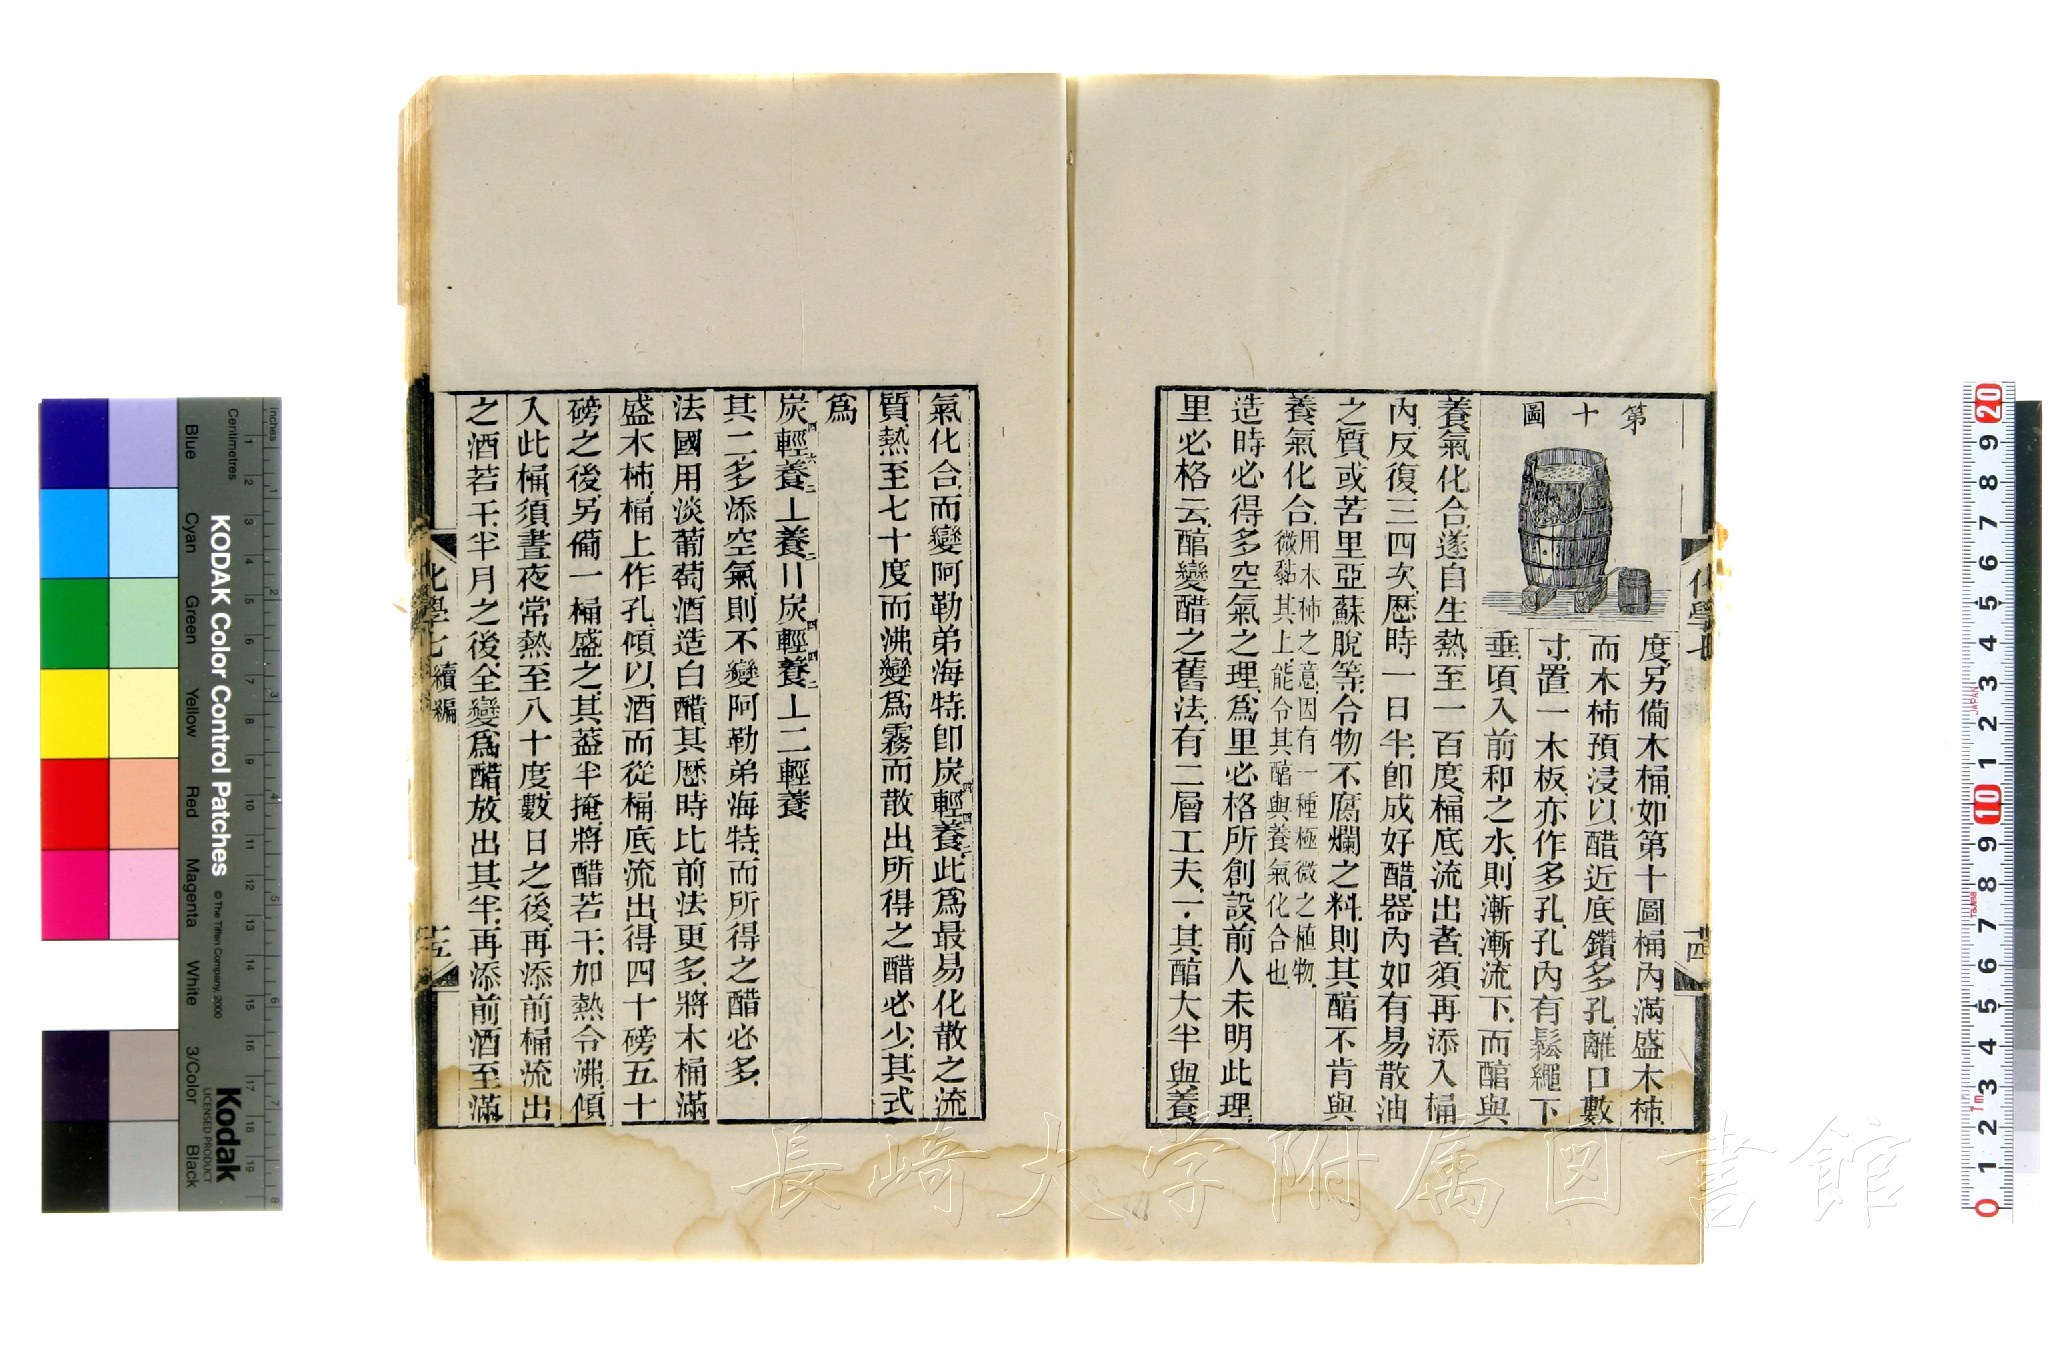 第十圖
度另備木桶如第十圖桶內滿盛木柹
而木柹預浸以醋近底鑽多孔離口數
寸置一木板亦作多孔孔內有鬆繩下
垂頃入前和之水則漸漸流下而醕與
養氣化合遂自生熱至一百度桶底流出者須再添入桶
內反復三四次歷時一日半卽成好醋器內如有易散油
之質或苦里亞蘇脫等令物不腐爛之料則其醕不肯與
養氣化合用木柹之意因有一種極微之植物
微黏其上能令其醕與養氣化合也
造時必得多空氣之理爲里必格所創設前人未明此理
里必格云醕變醋之舊法有二層工夫一其醕大半與養
化學七
廿四
氣化合而變阿勒弟海特卽炭四輕四養二此爲最易化散之流
質熱至七十度而沸變爲霧而散出所得之醋必少其式
爲
炭四輕六養二⊥養二=炭四輕四養二⊥二輕養
其二多添空氣則不變阿勒弟海特而所得之醋必多
法國用淡葡萄酒造白醋其歷時比前法更多將木桶滿
盛木柹桶上作孔傾以酒而從桶底流出得四十磅五十
磅之後另備一桶盛之其蓋半掩將醋若干加熱令沸傾
入此桶須晝夜常熱至八十度數日之後再添前桶流出
之酒若干半月之後全變爲醋放出其半再添前酒至滿
化學七 續編
廿五
KODAK Color Control Patches
© The Tiffen Company, 2000
Kodak
LICENSED PRODUCT
Inches
Centimetres
Blue
Cyan
Green
Yellow
Red
Magenta
White
3/Color
Black
1 2 3 4 5 6 7 8 9 10 11 12 13 14 15 16 17 18 19
1 2 3 4 5 6 7 8
20 9 8 7 6 5 4 3 2 1 10 9 8 7 6 5 4 3 2 1 0
JAPAN
長崎大学附属図書館